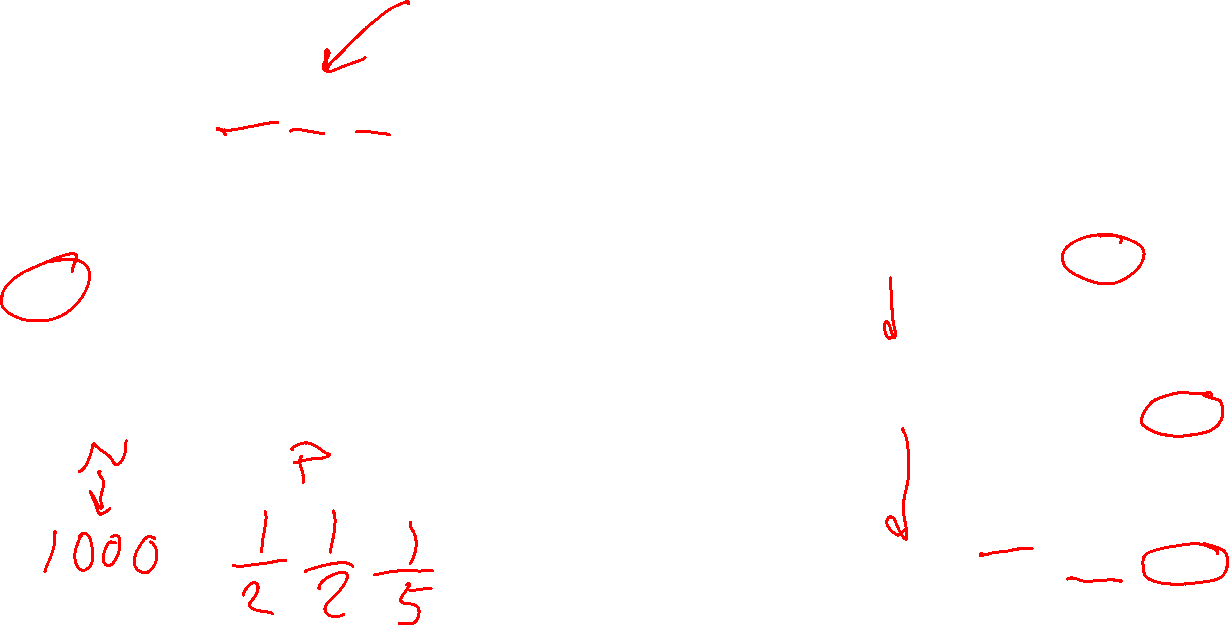 N P
1000 1/2 1/2 1/5